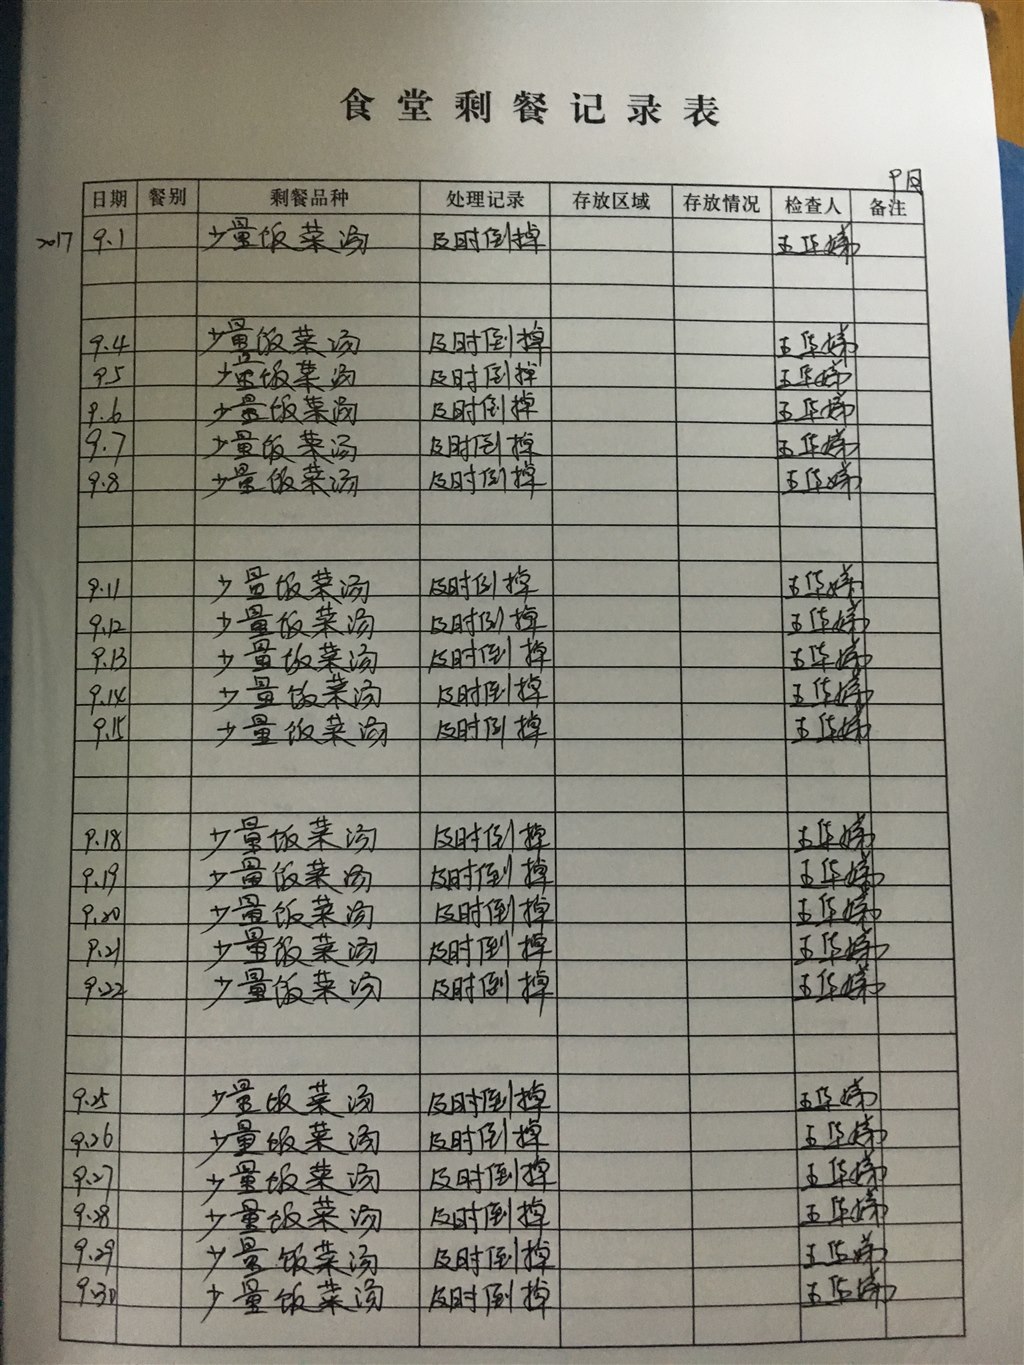 食堂剩餐记录表
9月
日期 餐别 剩餐品种 处理记录 存放区域 存放情况 检查人 备注
2017 9.1 少量饭菜汤 及时倒掉 王华娣
9.4 少量饭菜汤 及时倒掉 王华娣
9.5 少量饭菜汤 及时倒掉 王华娣
9.6 少量饭菜汤 及时倒掉 王华娣
9.7 少量饭菜汤 及时倒掉 王华娣
9.8 少量饭菜汤 及时倒掉 王华娣
9.11 少量饭菜汤 及时倒掉 王华娣
9.12 少量饭菜汤 及时倒掉 王华娣
9.13 少量饭菜汤 及时倒掉 王华娣
9.14 少量饭菜汤 及时倒掉 王华娣
9.15 少量饭菜汤 及时倒掉 王华娣
9.18 少量饭菜汤 及时倒掉 王华娣
9.19 少量饭菜汤 及时倒掉 王华娣
9.20 少量饭菜汤 及时倒掉 王华娣
9.21 少量饭菜汤 及时倒掉 王华娣
9.22 少量饭菜汤 及时倒掉 王华娣
9.25 少量饭菜汤 及时倒掉 王华娣
9.26 少量饭菜汤 及时倒掉 王华娣
9.27 少量饭菜汤 及时倒掉 王华娣
9.28 少量饭菜汤 及时倒掉 王华娣
9.29 少量饭菜汤 及时倒掉 王华娣
9.30 少量饭菜汤 及时倒掉 王华娣